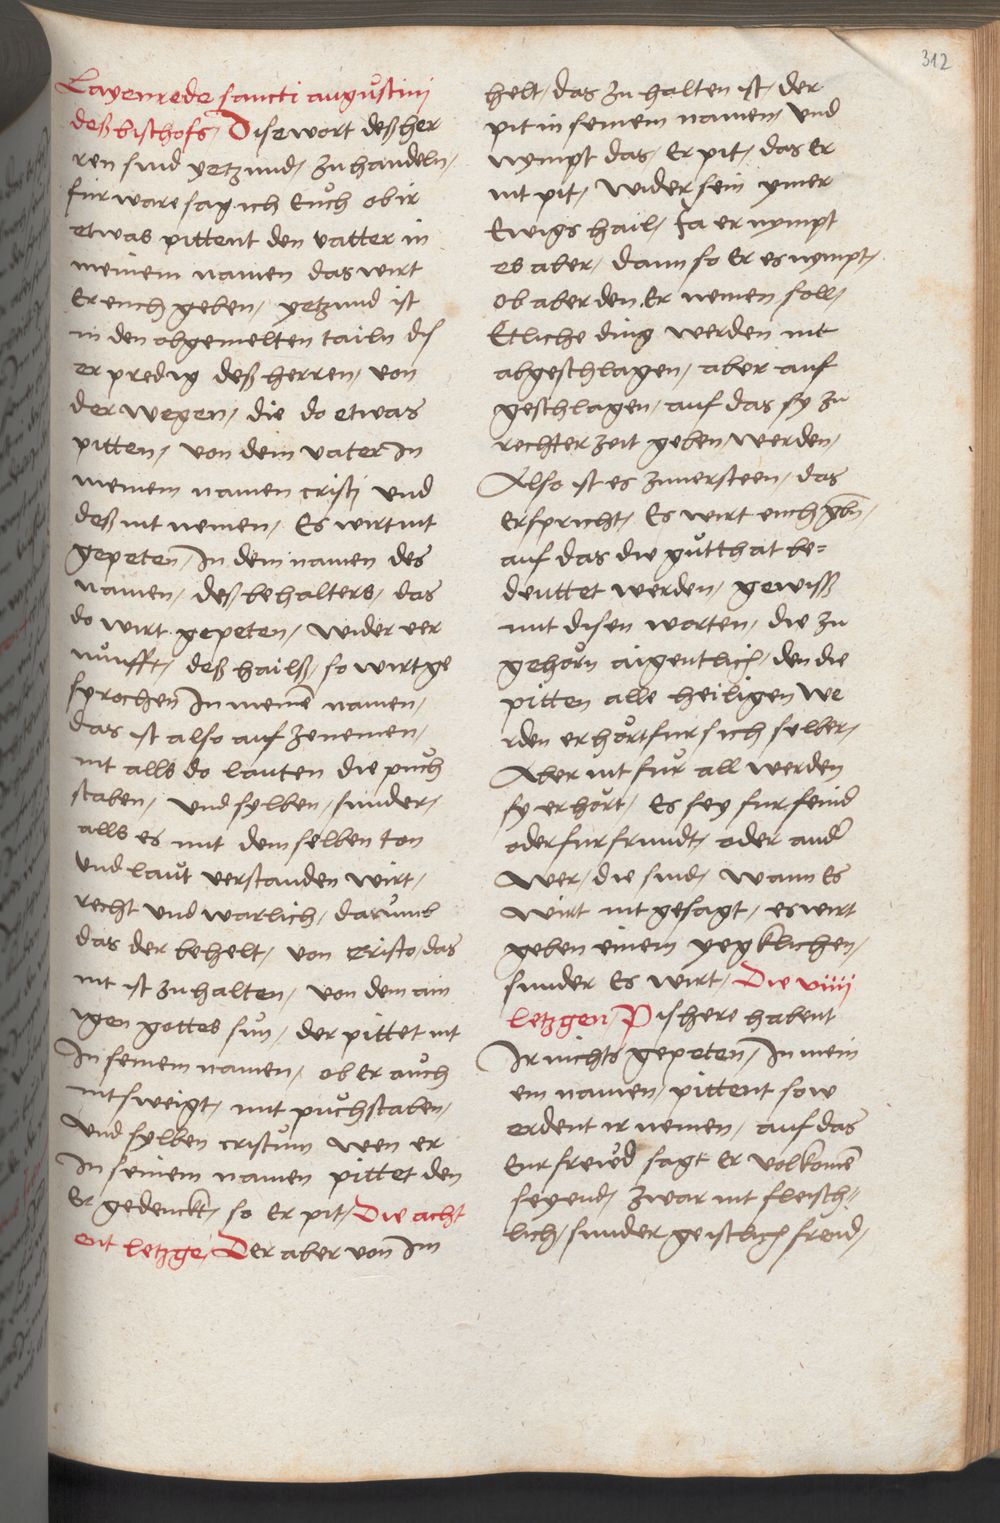 312
Layenrede sancti augustinj
deß bischofs, Dise wort deß her
ren sind yetzund, zu handeln,
fur ware sag ich Euch ob ir
etwas pittent den vatter in
meinem namen das wirt
Er euch geben, yetzund ist
in den obgemelten tailn dis
er predig deß herren, von
der wegen, die do etwas
pitten, von dem vater In
meinem namen cristi und
deß nit nemen, Es wirt nit
gepeten In dem namen des
namen, deß behalters, das
do wirt gepeten, wider ver
nunfft, deß hailß, so wirt ge
sprochen In meinē namen,
das ist also auf zenemen,
nit alls do lauten die puch
staben, und sylben, sunder,
alls es mit dem selben ton
und laut verstanden wirt,
recht und warlich, darumb
das der behelt, von Cristo, das
nit ist zu halten, von dem ain
igen gottes sun, der pittet nit
In seinem namen, ob er auch
nit sweigt, mit puchstaben,
und sylben cristum wen er
In seinem namen pittet den
Er gedenckt, so Er pit, Die acht
ent letzge, Der aber von Im
helt, das zu halten ist, der
pit in seinem namen, und
nympt das, Er pit, das Er
nit pit, wider sein ymer
Ewigs hail, Ja er nympt
es aber, dann so Er es nympt,
ob aber den Er nemen soll,
Etliche ding werden nit
abgeschlagen, aber auf
geschlagen, auf das sy zu
rechter zeit geben werden,
Also ist es zuuersteen, das
Er spricht, Es wirt euch gebn,
auf das die gutthat be=
deuttet werden, gewiss
mit disen worten, die zu
gehorn aigentlich, den die
pitten alle heiligen we
rden erhort fur sich selber,
Aber nit fur all werden
sy erhort, Es sey fur feind
oder fur frundt, oder ander
wer, die sind, wann Es
wirt nit gesagt, es wirt
geben einem yegklichen,
sunder Es wirt, Die viiij
letzgen, Pis here habent
Ir nichts gepeten, In mein
em namen, pittent so w
erdent ir nemen, auf das
Eur freud sagt Er volkomē
seyend, zwar nit fleisch=
lich, sunder geistlich freud,